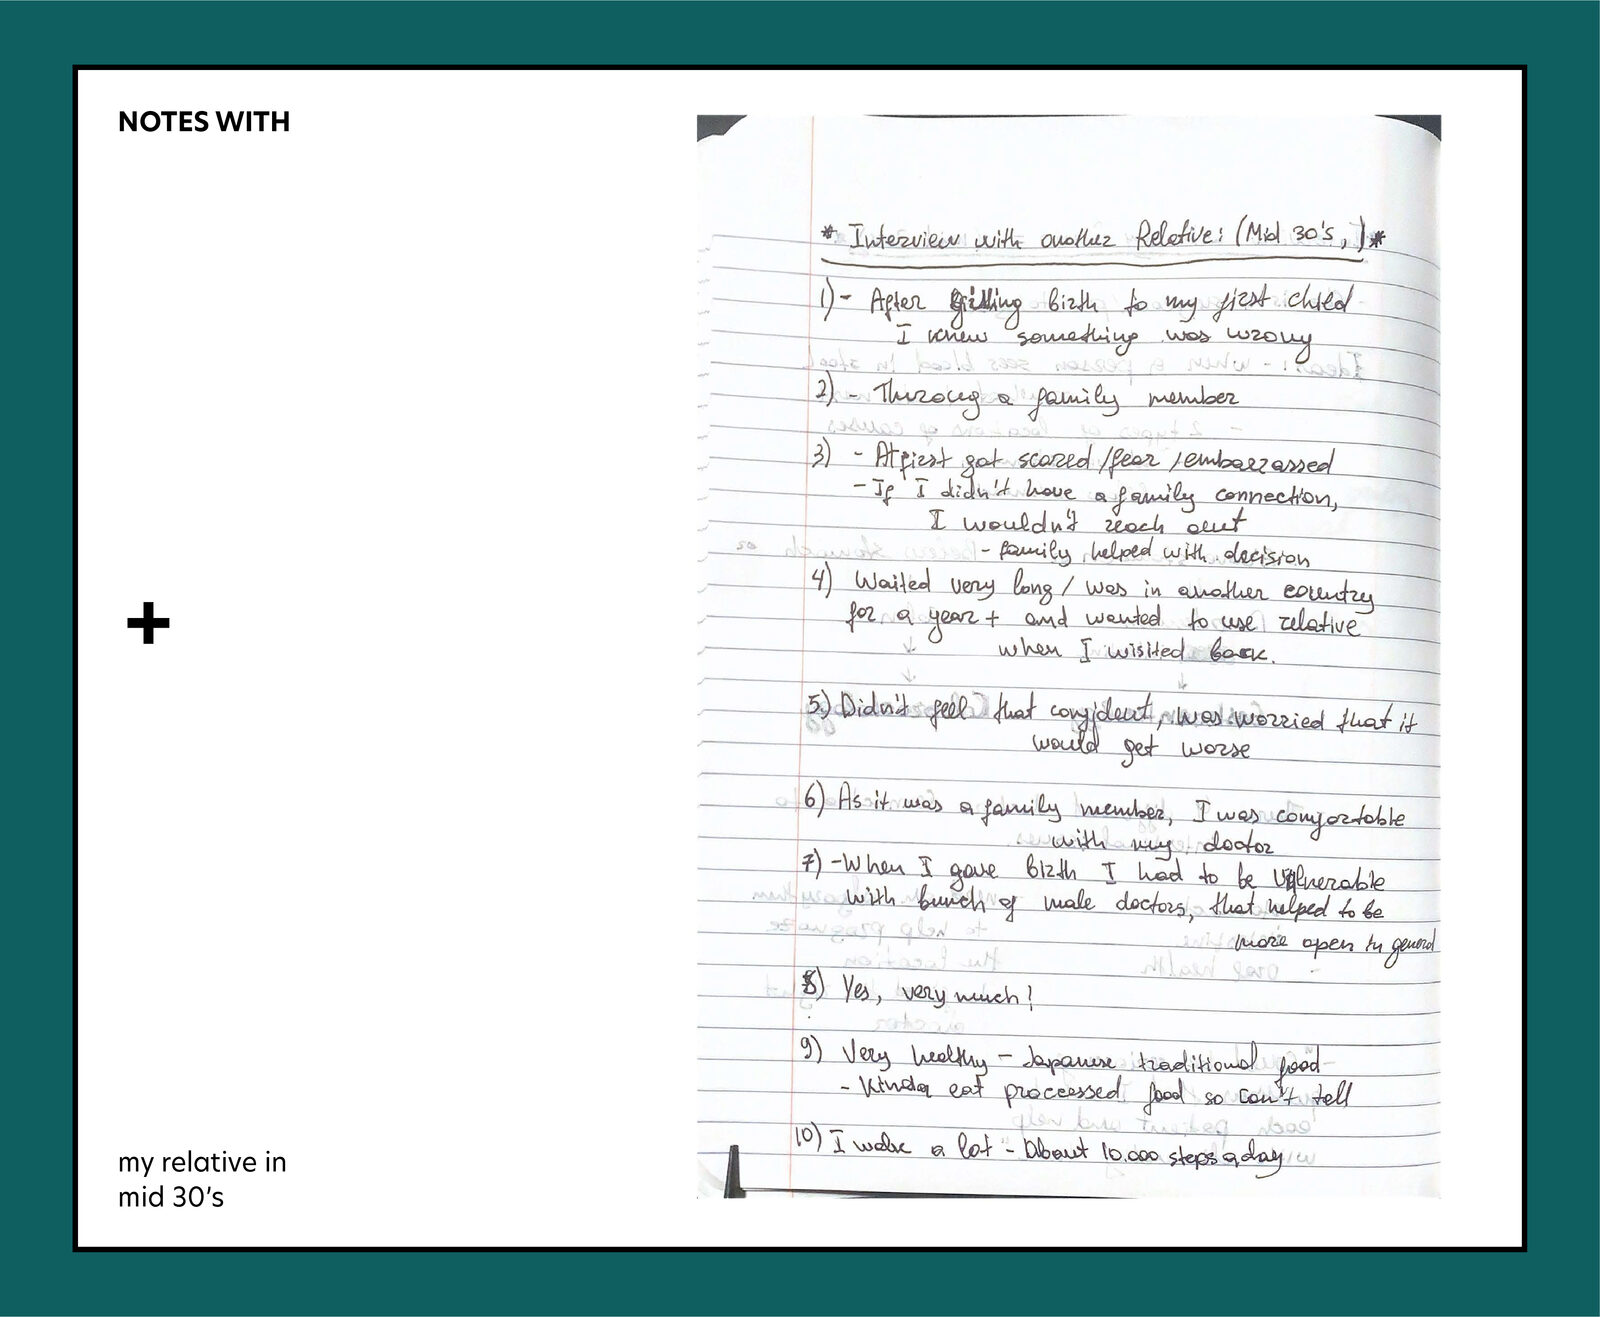 NOTES WITH
+
my relative in
mid 30's
* Interview with another Relative: (Mid 30's, ) *
1) - After giving birth to my first child
I knew something was wrong
2) - Throug a family member
3) - At first got scared / fear / embarrassed
- If I didn't have a family connection,
I wouldn't reach out
- family helped with decision
4) Waited very long / was in another country
for a year + and wanted to use relative
when I wisited back.
5) Didn't feel that confident, was worried that it
would get worse
6) As it was a family member, I was comfortable
with my doctor
7) - When I gave birth I had to be vulnerable
with bunch of male doctors, that helped to be
more open in general
8) Yes, very much!
9) Very healthy - Japanese traditional food
- Kinda eat proccessed food so can't tell
10) I walk a lot - About 10.000 steps a day